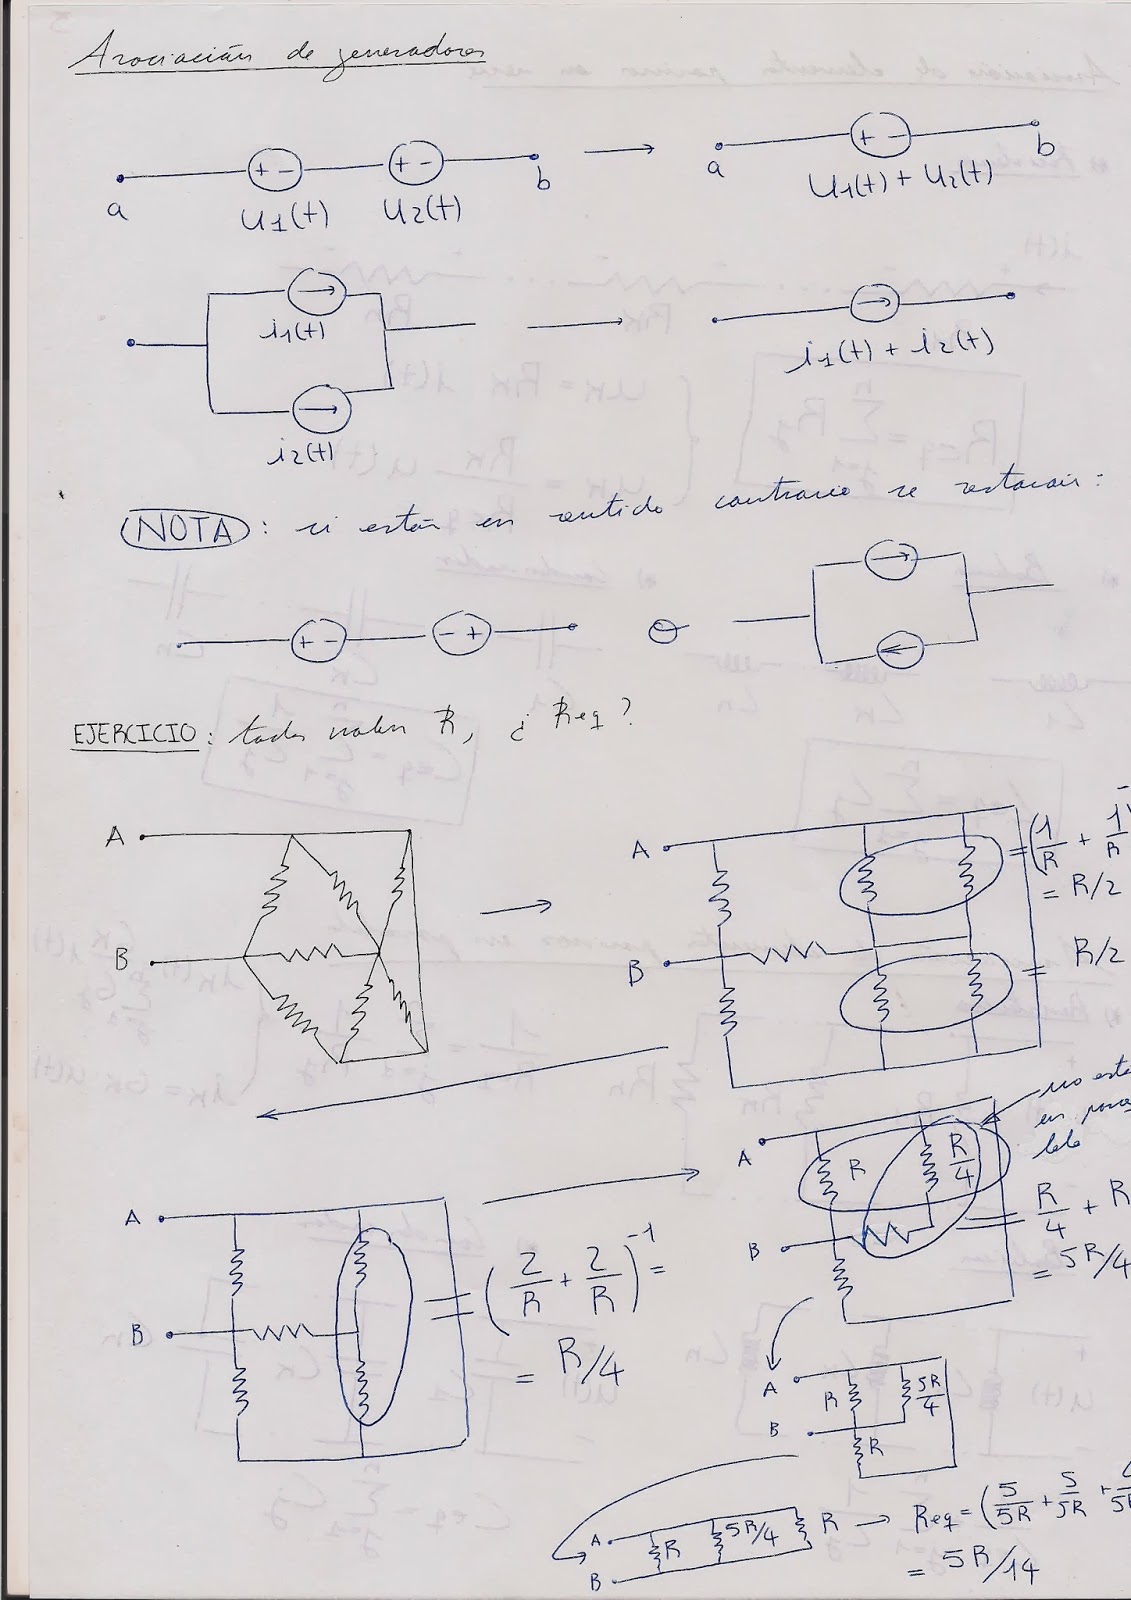 Asociación de generadores
a + - + - b
u1(t) u2(t)
a + - b
u1(t) + u2(t)
i1(t)
i2(t)
i1(t) + i2(t)
NOTA: si están en sentido contrario se restarán:
+ - - + o
EJERCICIO: todas valen R, ¿Req?
A
B
A
B
= (1/R + 1/R)-
= R/2
= R/2
A
B
= (2/R + 2/R)^-1 =
= R/4
A
B
R
R/4
no está
en para
lelo
= R/4 + R
= 5R/4
A
B
R
5R/4
R
A
B
R 5R/4 R → Req = (5/5R + 5/5R + 4/5R
= 5R/14